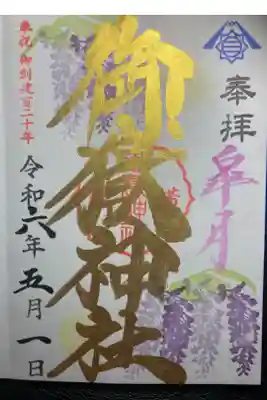 奉拝
皐月
御嶽神社
令和六年五月一日
奉祝御創建百二十年